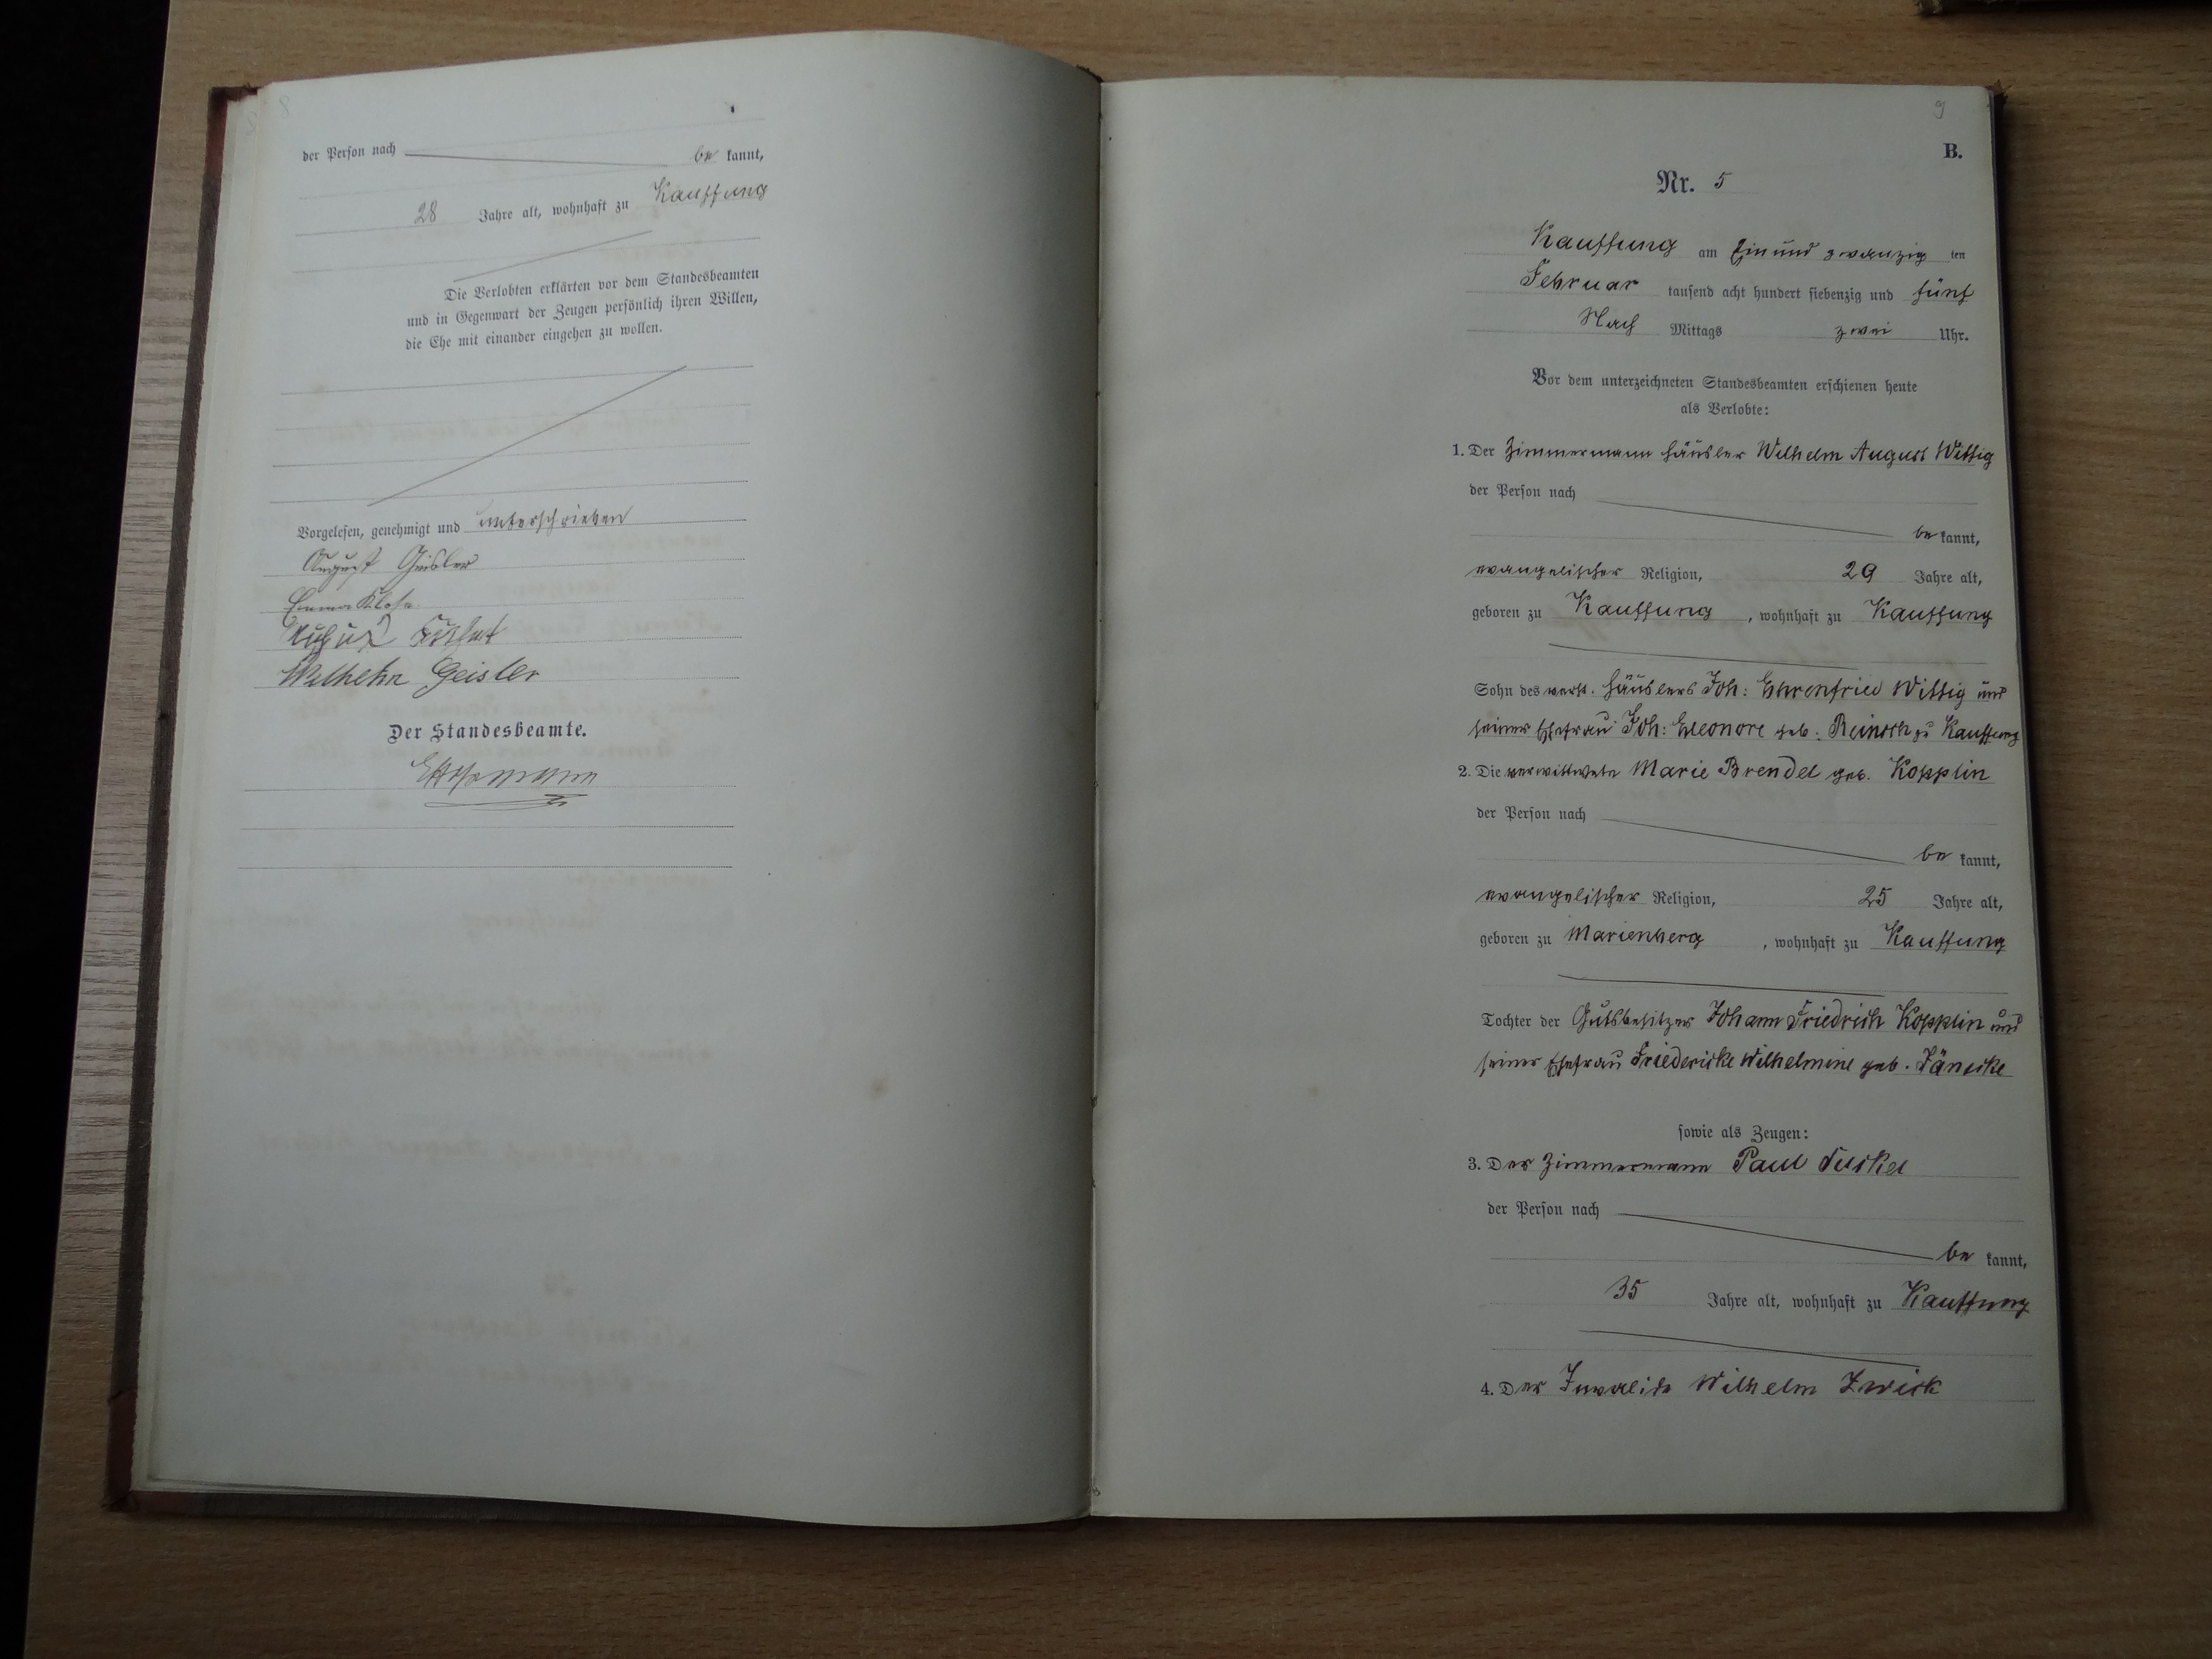 8
der Person nach be kannt,
28 Jahre alt, wohnhaft zu Kauffung
Die Verlobten erklärten vor dem Standesbeamten
und in Gegenwart der Zeugen persönlich ihren Willen,
die Ehe mit einander eingehen zu wollen.
Vorgelesen, genehmigt und unterschrieben
August Geisler
Emma Klose
August
Wilhelm Geisler
Der Standesbeamte.
9
B.
Nr. 5
Kauffung am Ein und zwanzig ten
Februar tausend acht hundert siebenzig und fünf
Nach Mittags zwei Uhr.
Vor dem unterzeichneten Standesbeamten erschienen heute
als Verlobte:
1. Der Zimmermann Häusler Wilhelm August Wittig
der Person nach
be kannt,
evangelischer Religion, 29 Jahre alt,
geboren zu Kauffung, wohnhaft zu Kauffung
Sohn des verst. Häuslers Joh: Ehrenfried Wittig und
seiner Ehefrau Joh: Eleonore geb. Reinsch zu Kauffung
2. Die verwittwete Marie Brendel geb. Kopplin
der Person nach
be kannt,
evangelischer Religion, 25 Jahre alt,
geboren zu Marienberg, wohnhaft zu Kauffung
Tochter der Gutsbesitzer Johann Friedrich Kopplin und
seiner Ehefrau Friedericke Wilhelmine geb. Jänicke
sowie als Zeugen:
3. Der Zimmermann Paul
der Person nach
be kannt,
35 Jahre alt, wohnhaft zu Kauffung
4. Der Invalide Wilhelm Zwick